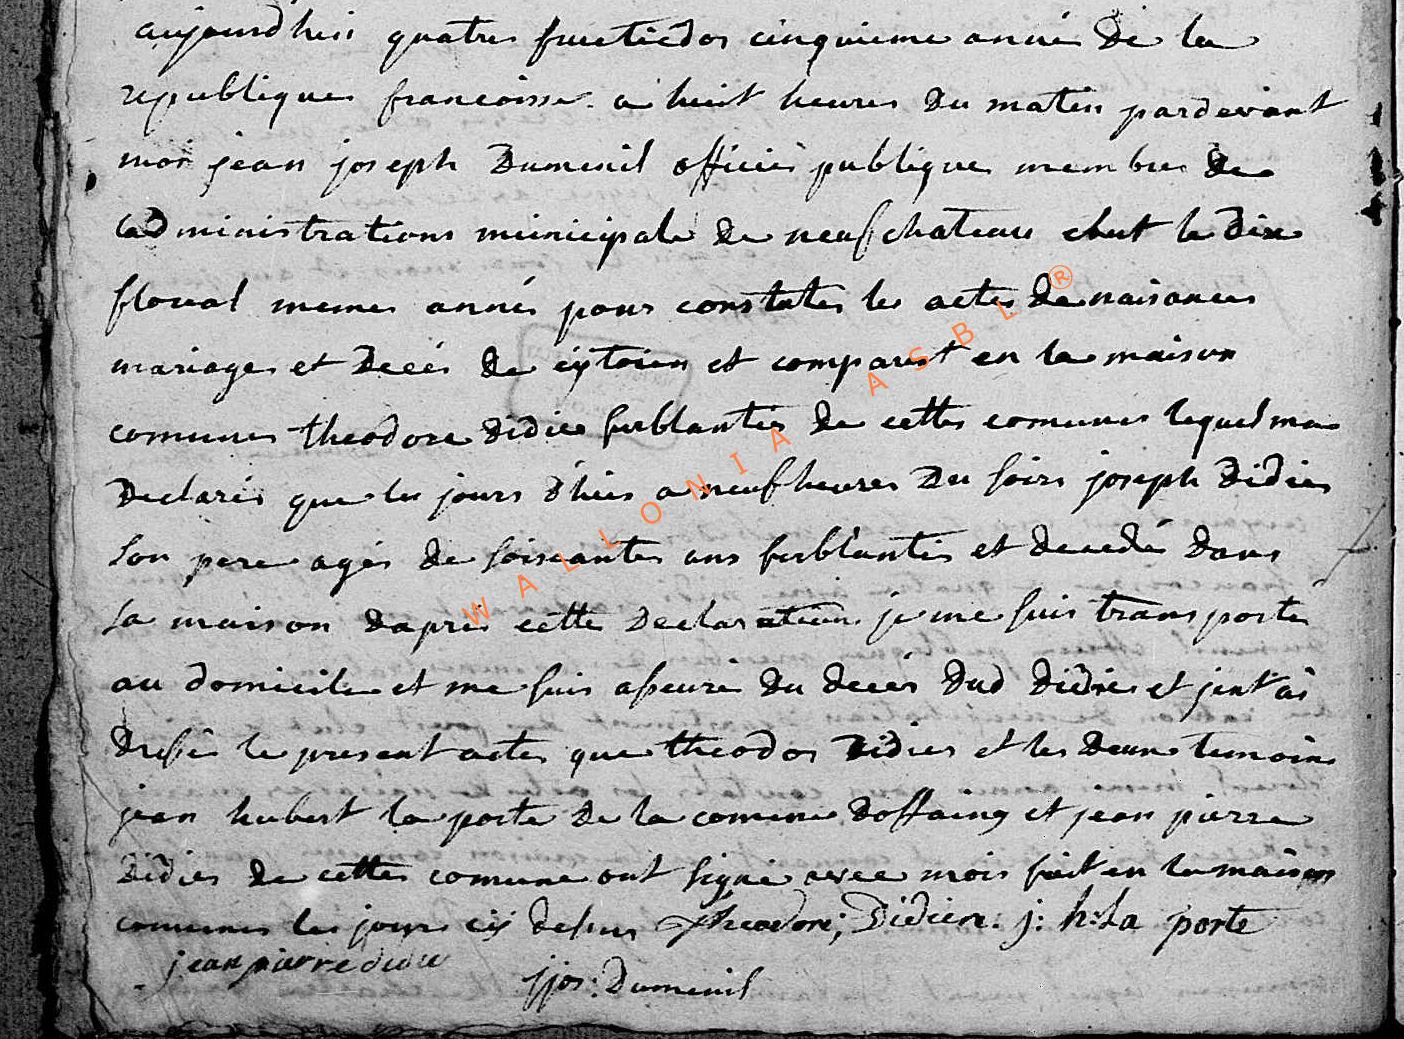 aujourd'huis quatres fructidor cinquieme année De la
republiques francoisse a huit heures Du matin pardevant
moi jean joseph Dumenil officiés publiques membres de
ladministrations municipale de neufchateau elut le dix
floreal memes année pour constater les actes de naisances
mariages et Decés de citoien et comparut en la maison
comunes theodore Didier ferblantiés de cettes comunes lequel ma
Declarés que les jours d'hiers a neuf heures Du soirs joseph Didier
son pere agés de soiscantes ans ferblantiés et decedé dans
sa maison daprés cette Declaration je me suis transporté
au domicile et me suis asseuré du decés dud Didier et jent ai
dressé le present actes que theodor Didier et les deux temoins
jean hubert la porte de la comune doffaing et jean pierre
Didier de cettes comune ont signé avec mois fait en la maison
comunes les jours cij desus Theodore Didier. j: h: La porte
jean pierre didie
jjos: Dumenil
WALLONIA ASBL ®